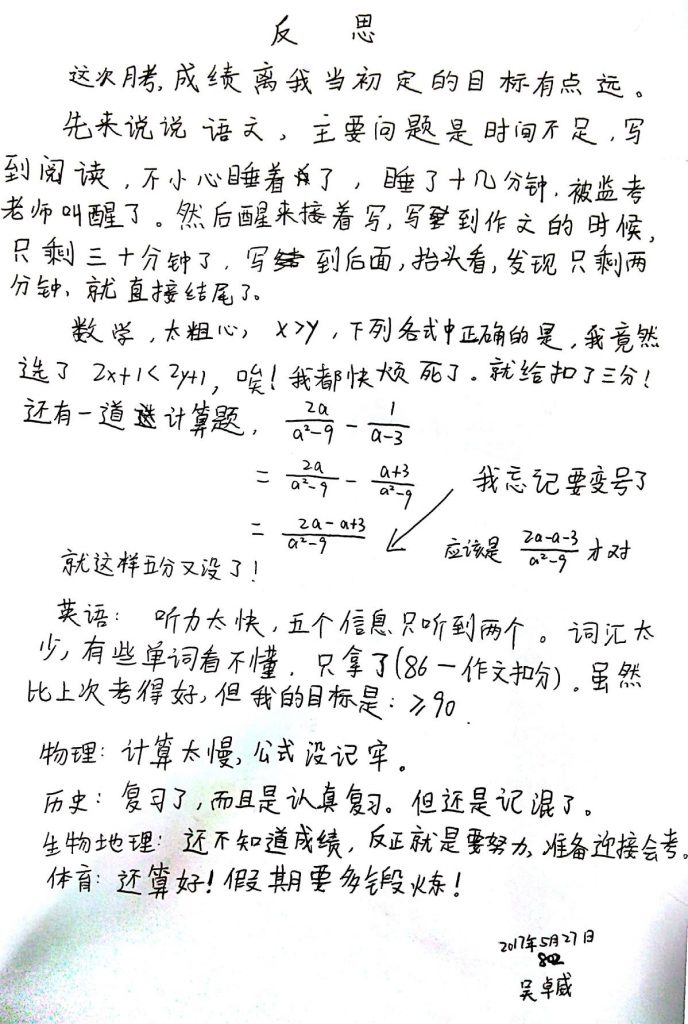 反 思
这次月考,成绩离我当初定的目标有点远。
先来说说语文,主要问题是时间不足,写
到阅读,不小心睡着了,睡了十几分钟,被监考
老师叫醒了。然后醒来接着写,写到作文的时候,
只剩三十分钟了,写到后面,抬头看,发现只剩两
分钟,就直接结尾了。
数学,太粗心,x>y,下列各式中正确的是,我竟然
选了 2x+1<2y+1,唉!我都快烦死了。就给扣了三分!
还有一道计算题, 2a/(a²-9) - 1/(a-3)
= 2a/(a²-9) - (a+3)/(a²-9) 我忘记要变号了
= (2a-a+3)/(a²-9) 应该是 (2a-a-3)/(a²-9) 才对
就这样五分又没了!
英语: 听力太快,五个信息只听到两个。词汇太
少,有些单词看不懂,只拿了(86-作文扣分)。虽然
比上次考得好,但我的目标是:≥90.
物理:计算太慢,公式没记牢。
历史:复习了,而且是认真复习。但还是记混了。
生物地理:还不知道成绩,反正就是要努力,准备迎接会考。
体育:还算好!假期要多锻炼!
2017年5月27日
802
吴卓威